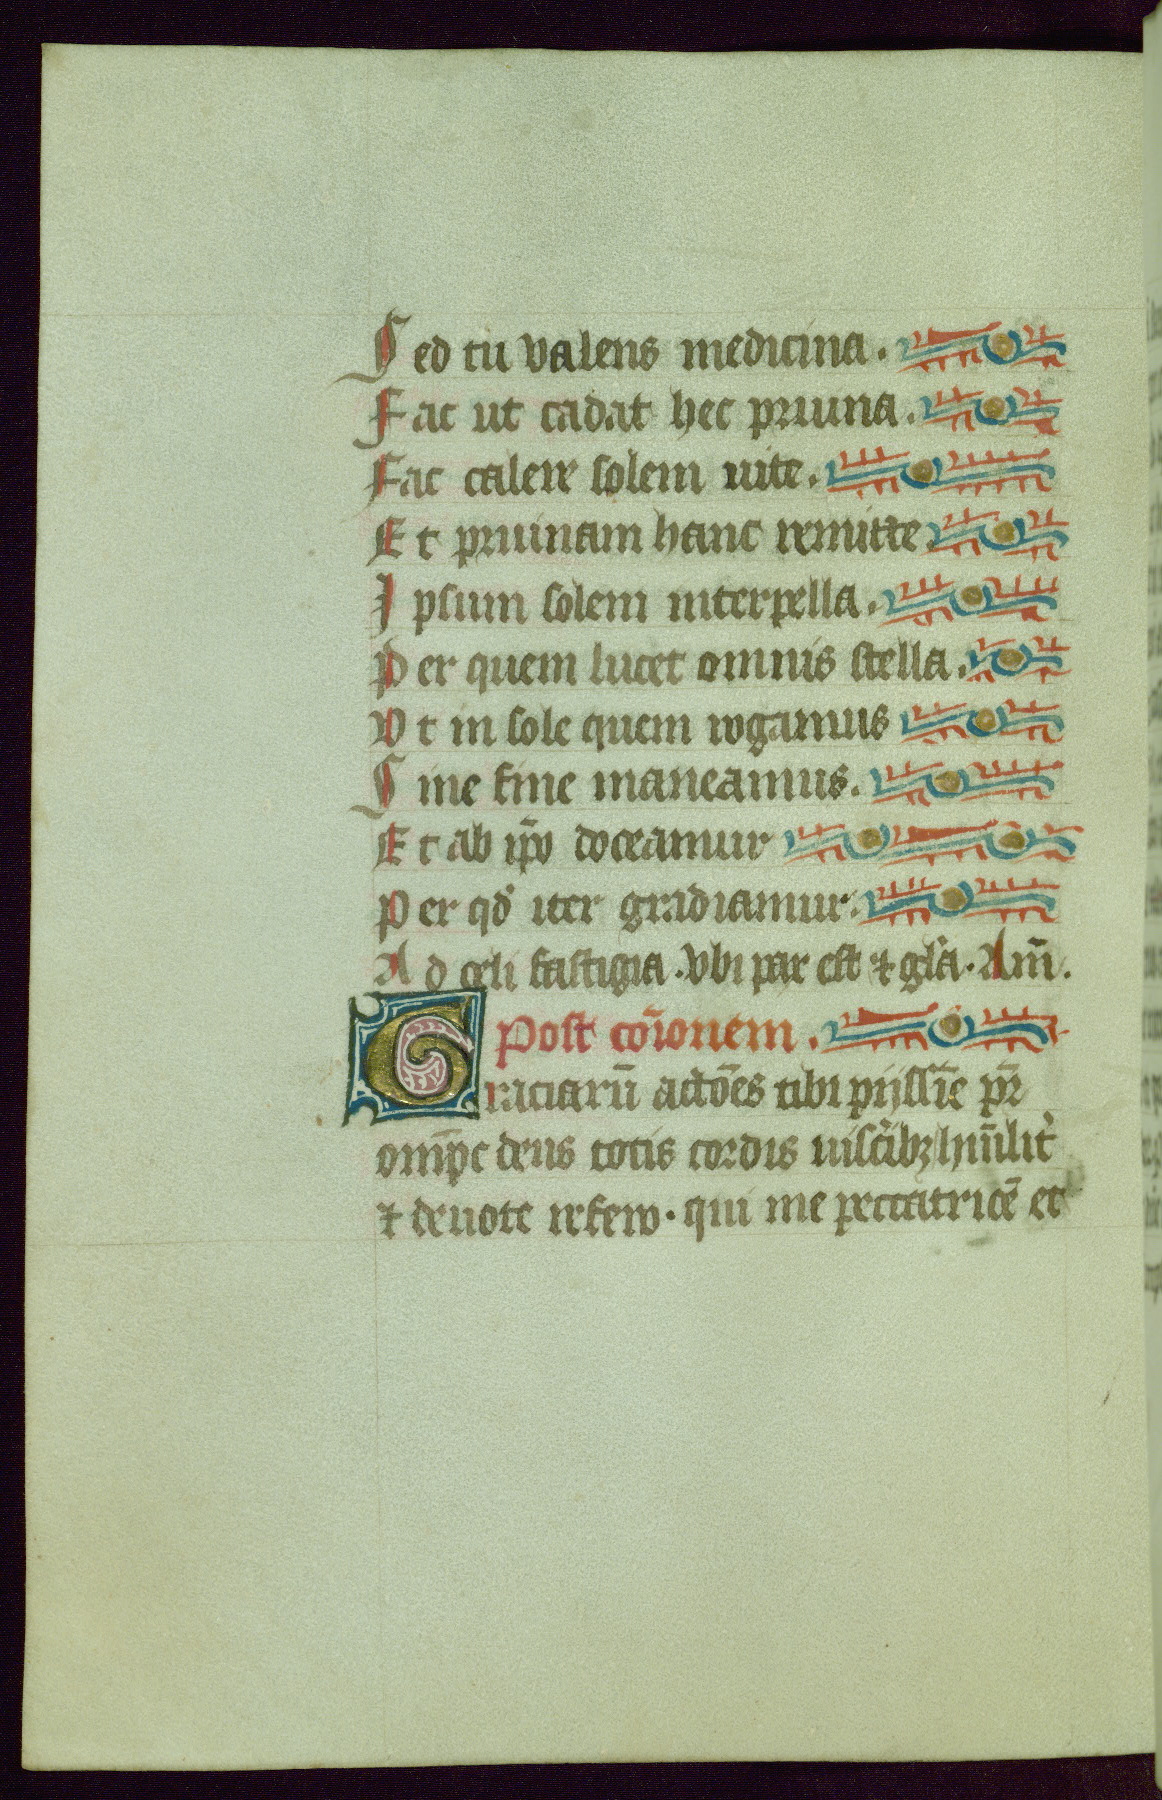 Sed tu valens medicina.
Fac ut cadat hec pruina.
Fac calere solem uite.
Et pruinam hanc remitte.
Ipsum solem interpella.
Per quem lucet omnis stella.
Vt in sole quem rogamus
Sine fine maneamus.
Et ab ip̄o doceamur
Per qđ iter gradiamur.
Ad celi fastigia. Vbi pax est ⁊ gl̄a. Am̄.
Post cōīonem.
Graciarū actōēs tibi pijssīe pr̄
om̄pc deus totis cordis uisc̄ibꝫ hūilit̄
⁊ deuote refero. qui me peccatricē et